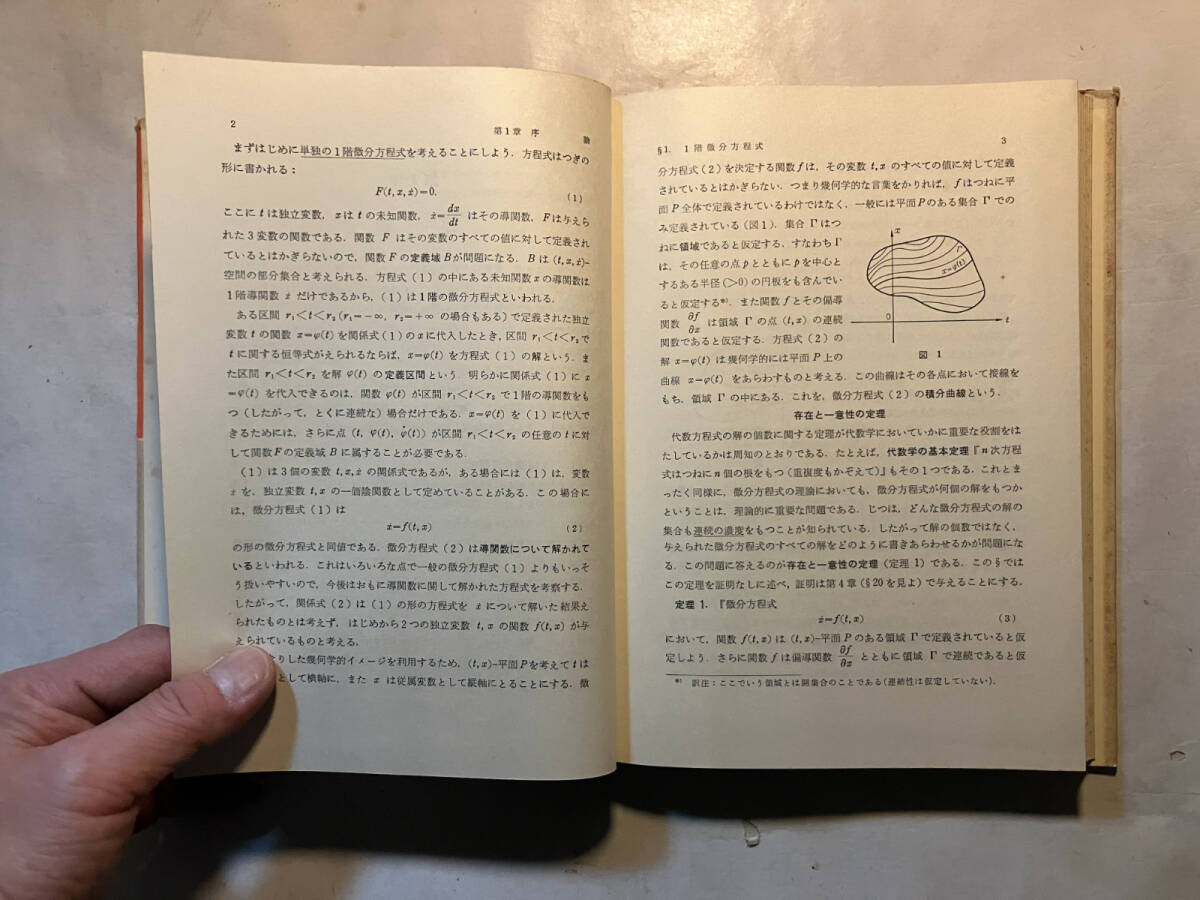 2
第1章 序 論
まずはじめに単独の1階微分方程式を考えることにしよう．方程式はつぎの
形に書かれる：
F(t, x, ẋ)=0. (1)
ここに t は独立変数，x は t の未知関数，ẋ=dx/dt はその導関数，F は与えら
れた3変数の関数である．関数 F はその変数のすべての値に対して定義され
ているとはかぎらないので，関数 F の定義域 B が問題になる．B は (t, x, ẋ)-
空間の部分集合と考えられる．方程式 (1) の中にある未知関数 x の導関数は
1階導関数 ẋ だけであるから，(1) は1階の微分方程式といわれる．
ある区間 r₁<t<r₂ (r₁=−∞, r₂=+∞ の場合もある) で定義された独立
変数 t の関数 x=φ(t) を関係式 (1) の x に代入したとき，区間 r₁<t<r₂ で
t に関する恒等式がえられるならば，x=φ(t) を方程式 (1) の解という．ま
た区間 r₁<t<r₂ を解 φ(t) の定義区間という．明らかに関係式 (1) に x
=φ(t) を代入できるのは，関数 φ(t) が区間 r₁<t<r₂ で1階の導関数をも
つ (したがって，とくに連続な) 場合だけである．x=φ(t) を (1) に代入で
きるためには，さらに点 (t, φ(t), φ̇(t)) が区間 r₁<t<r₂ の任意の t に対
して関数 F の定義域 B に属することが必要である．
(1) は3個の変数 t, x, ẋ の関係式であるが，ある場合には (1) は，変数
ẋ を，独立変数 t, x の一価陰関数として定めていることがある．この場合に
は，微分方程式 (1) は
ẋ=f(t, x) (2)
の形の微分方程式と同値である．微分方程式 (2) は導関数について解かれて
いるといわれる．これはいろいろな点で一般の微分方程式 (1) よりもいっそ
う扱いやすいので，今後はおもに導関数に関して解かれた方程式を考察する．
したがって，関係式 (2) は (1) の形の方程式を ẋ について解いた結果え
られたものとは考えず，はじめから2つの独立変数 t, x の関数 f(t, x) が与
えられているものと考える．
りした幾何学的イメージを利用するため，(t, x)-平面 P を考えて t は
として横軸に，また x は従属変数として縦軸にとることにする．微
§1. 1階微分方程式 3
分方程式 (2) を決定する関数 f は，その変数 t, x のすべての値に対して定義
されているとはかぎらない．つまり幾何学的な言葉をかりれば，f はつねに平
面 P 全体で定義されているわけではなく，一般には平面 P のある集合 Γ での
み定義されている (図1)．集合 Γ はつ
ねに領域であると仮定する．すなわち Γ
は，その任意の点 p とともに p を中心と
するある半径 (>0) の円板をも含んでい
ると仮定する*⁾．また関数 f とその偏導
関数 ∂f/∂x は領域 Γ の点 (t, x) の連続
関数であると仮定する．方程式 (2) の
解 x=φ(t) は幾何学的には平面 P 上の
x
Γ
x=φ(t)
0
t
図 1
曲線 x=φ(t) をあらわすものと考える．この曲線はその各点において接線を
もち，領域 Γ の中にある．これを，微分方程式 (2) の積分曲線という．
存在と一意性の定理
代数方程式の解の個数に関する定理が代数学においていかに重要な役割をは
たしているかは周知のとおりである．たとえば，代数学の基本定理『n 次方程
式はつねに n 個の根をもつ (重複度もかぞえて)』もその1つである．これとま
ったく同様に，微分方程式の理論においても，微分方程式が何個の解をもつか
ということは，理論的に重要な問題である．じつは，どんな微分方程式の解の
集合も連続の濃度をもつことが知られている．したがって解の個数ではなく，
与えられた微分方程式のすべての解をどのように書きあらわせるかが問題にな
る．この問題に答えるのが存在と一意性の定理 (定理1) である．この§では
この定理を証明なしに述べ，証明は第4章 (§20を見よ) で与えることにする．
定理 1. 『微分方程式
ẋ=f(t, x) (3)
において，関数 f(t, x) は (t, x)-平面 P のある領域 Γ で定義されていると仮
定しよう．さらに関数 f は偏導関数 ∂f/∂x とともに領域 Γ で連続であると仮
*⁾ 訳注：ここでいう領域とは開集合のことである (連結性は仮定していない)．